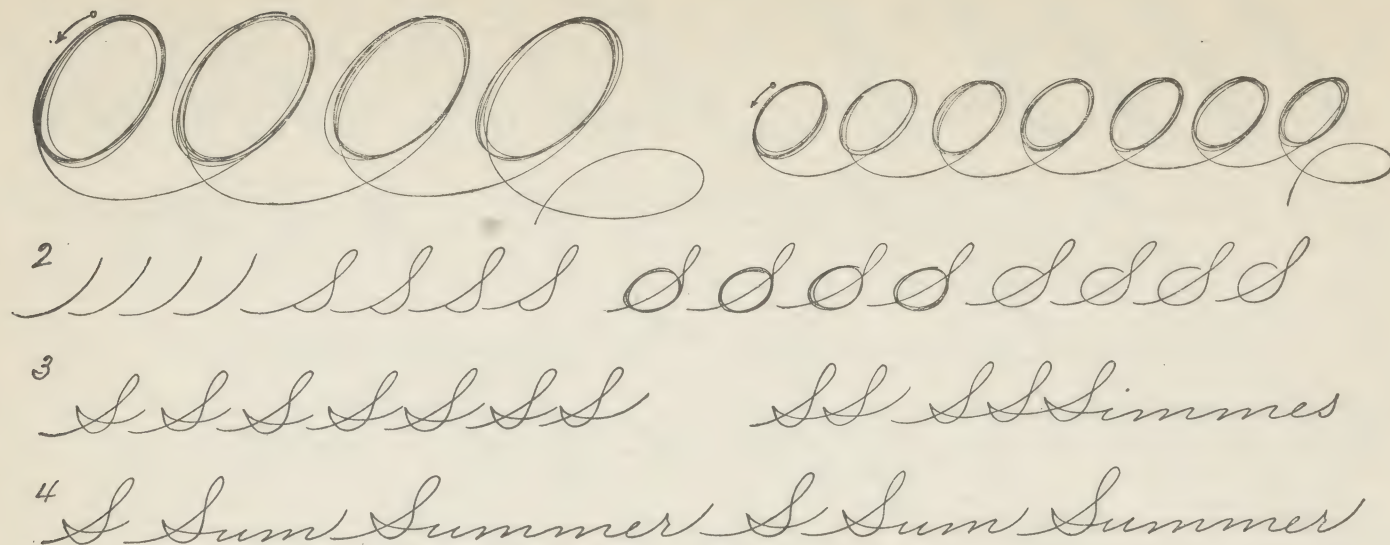 2 S S S S S S S S S S S S
3 S S S S S S S S S S S Simmes
4 S Sum Summer S Sum Summer